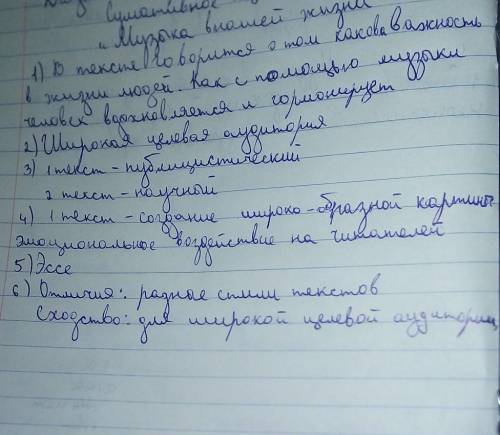 Суммативное
"Музыка в нашей жизни
1) В тексте говорится о том какова важность
в жизни людей. Как с помощью музыки
человек вдохновляется и гормонирует
2) Широкая целевая аудитория
3) 1 текст - публицистический
2 текст - научный
4) 1 текст - создание широко-образной картины
эмоциональное воздействие на читателей
5) Эссе
6) Отличия: разные стили текстов
Сходство: для широкой целевой аудитории